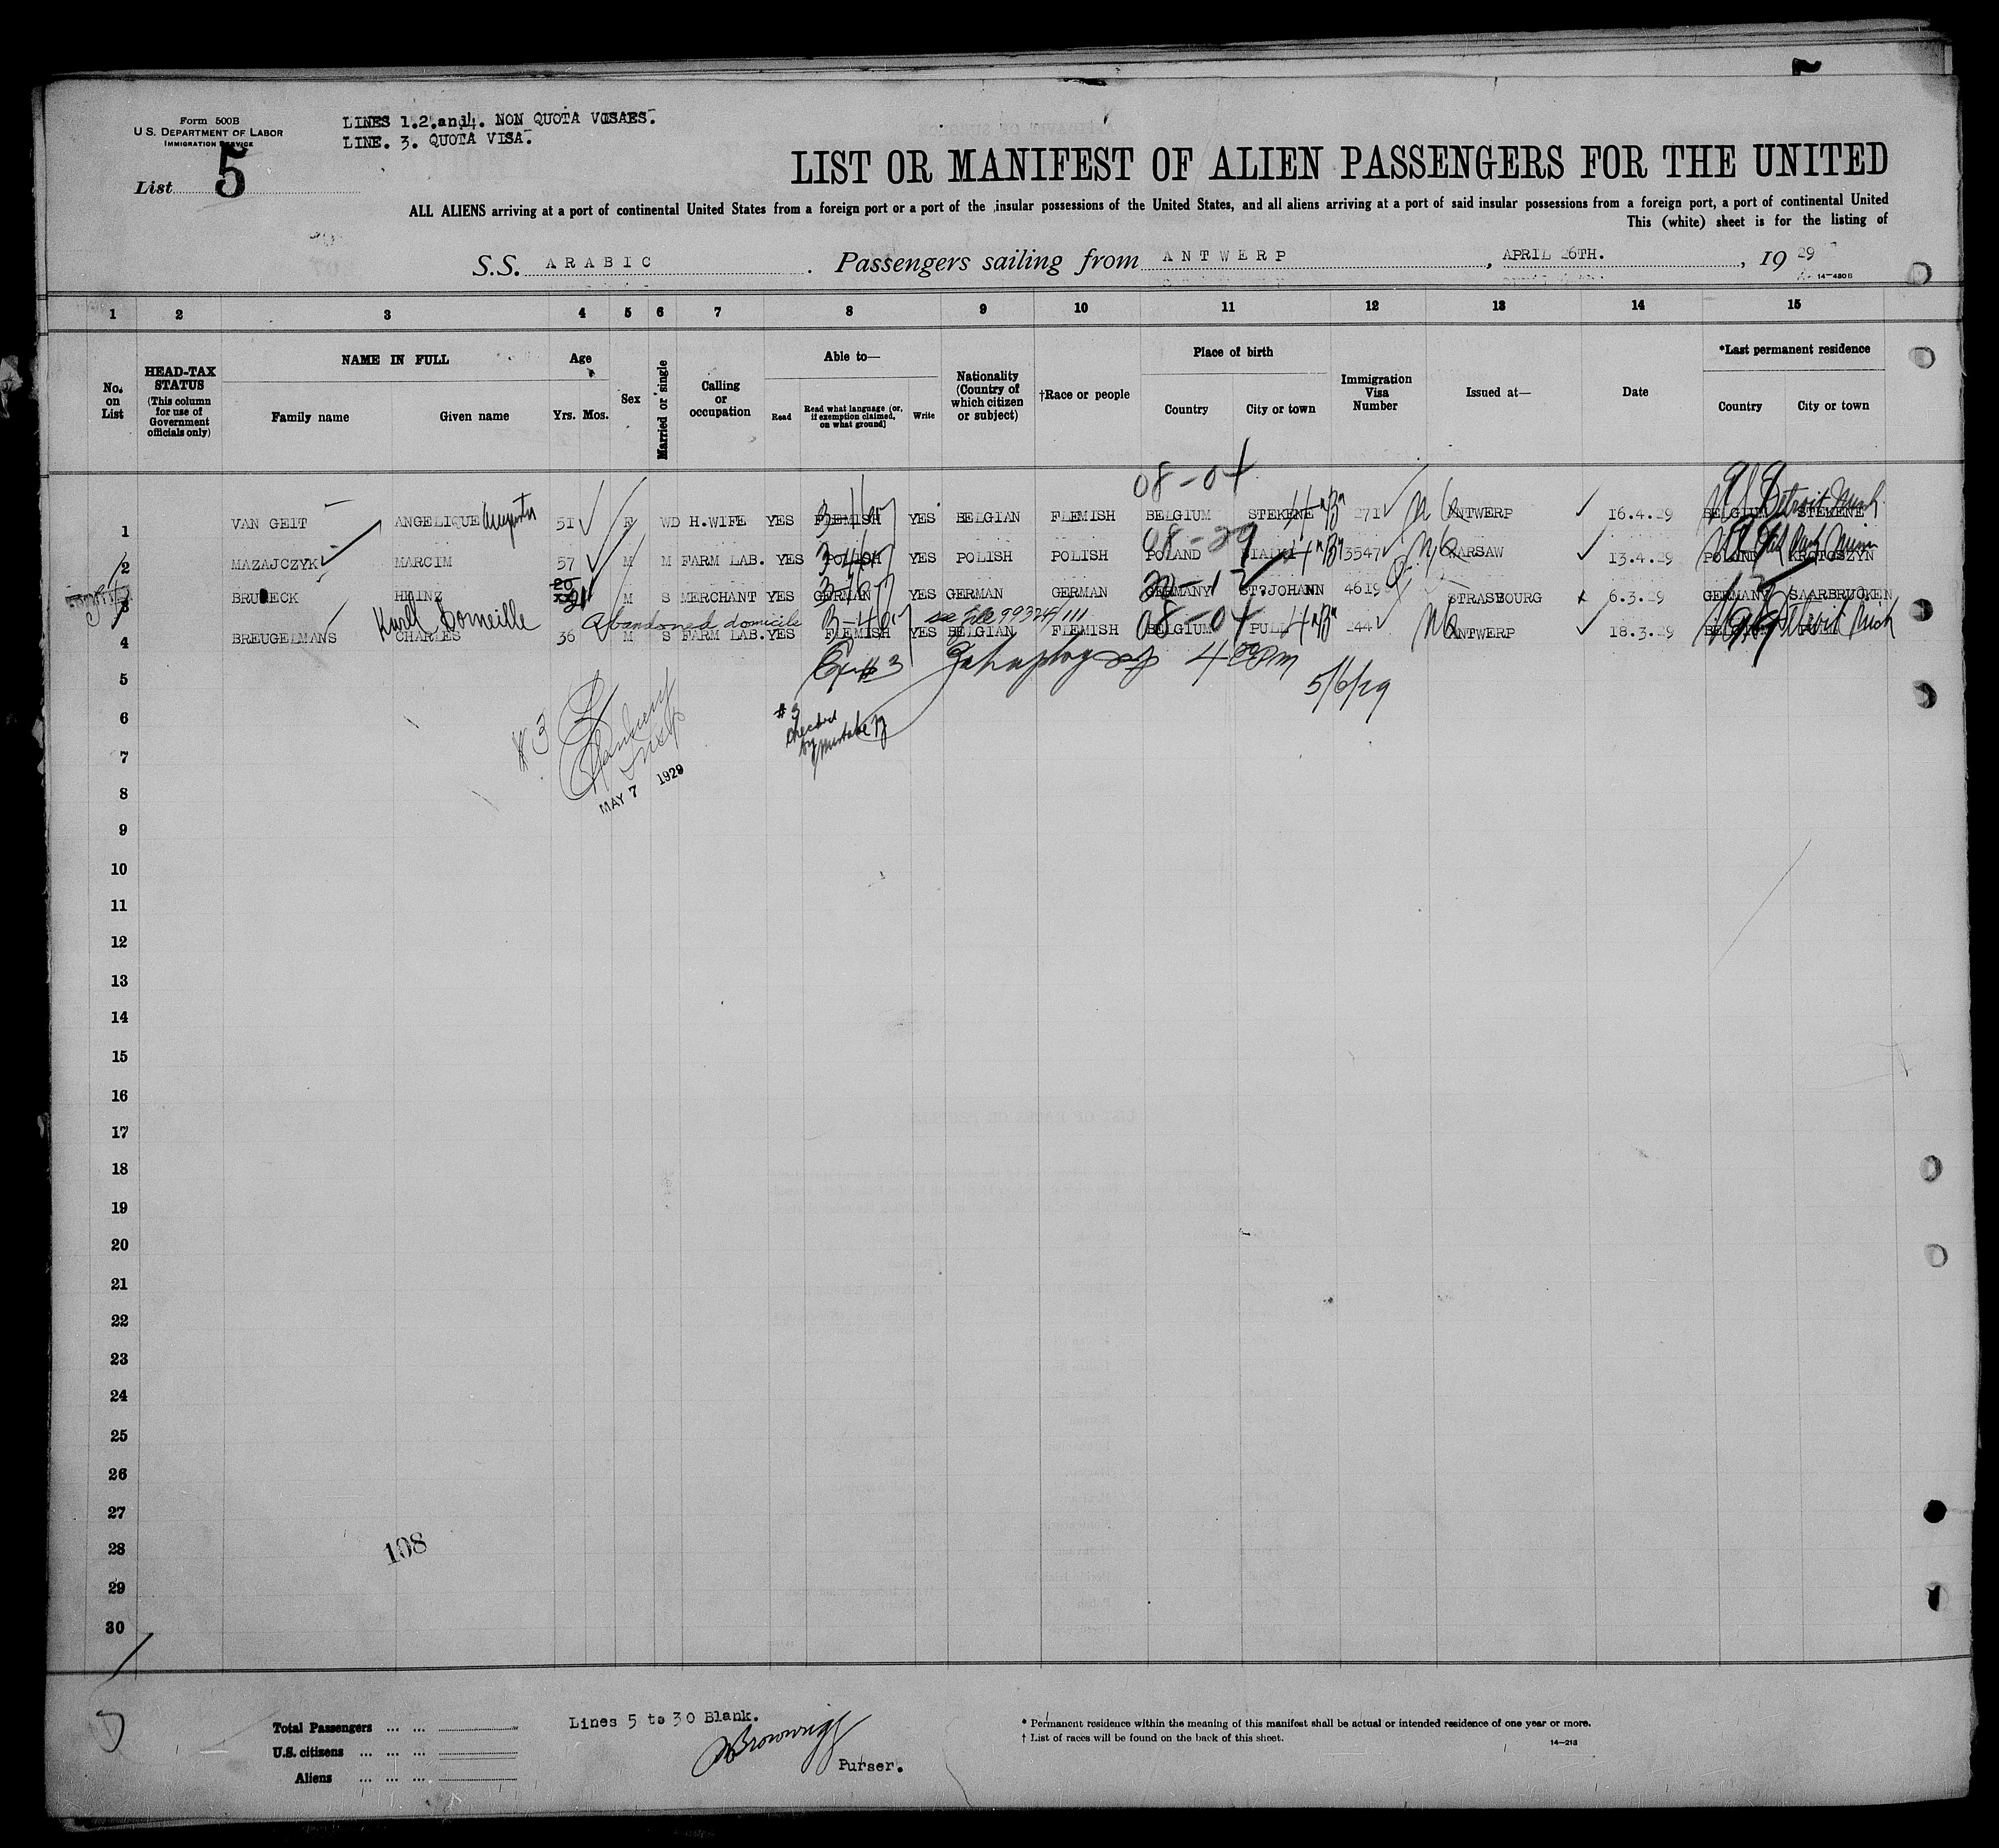 5
Form 500B
U.S. DEPARTMENT OF LABOR
IMMIGRATION SERVICE
LINES 1.2.and 4. NON QUOTA VISAES.
LINE. 3. QUOTA VISA.
List 5
LIST OR MANIFEST OF ALIEN PASSENGERS FOR THE UNITED
ALL ALIENS arriving at a port of continental United States from a foreign port or a port of the insular possessions of the United States, and all aliens arriving at a port of said insular possessions from a foreign port, a port of continental United
This (white) sheet is for the listing of
S.S. ARABIC . Passengers sailing from ANTWERP , APRIL 26TH. , 19 29
14—480B
1 2 3 4 5 6 7 8 9 10 11 12 13 14 15
No. on List
HEAD-TAX STATUS (This column for use of Government officials only)
NAME IN FULL
Family name Given name
Age
Yrs. Mos.
Sex
Married or single
Calling or occupation
Able to—
Read Read what language (or, if exemption claimed, on what ground) Write
Nationality (Country of which citizen or subject)
†Race or people
Place of birth
Country City or town
Immigration Visa Number
Issued at—
Date
*Last permanent residence
Country City or town
08-04 99
1 VAN GEIT ANGELIQUE Augusta 51 F WD H.WIFE YES FLEMISH YES BELGIAN FLEMISH BELGIUM STEKENE 271 ANTWERP 16.4.29 BELGIUM STEKENE Detroit Mich
08-29
2 MAZAJCZYK MARCIM 57 M M FARM LAB. YES POLISH YES POLISH POLISH POLAND 3547 WARSAW 13.4.29 POLAND KROTOSZYN
3 HEINZ 20 21 M S MERCHANT YES GERMAN YES GERMAN GERMAN GERMANY ST.JOHANN 4619 STRASBOURG 6.3.29 GERMANY SAARBRUCKEN
Corneille Abandoned domicile see file 99324/111 08-04
4 BREUGELMANS CHARLES 36 M S FARM LAB. YES FLEMISH YES BELGIAN FLEMISH BELGIUM 244 ANTWERP 18.3.29 BELGIUM Detroit Mich
#3 4 00 PM
5/6/29
5
6
#3
checked
by mistake
#3
7
MAY 7 1929
8
9
10
11
12
13
14
15
16
17
18
19
20
21
22
23
24
25
26
27
28
108
29
30
Total Passengers ... ...
U.S. citizens ... ... ...
Aliens ... ... ...
Lines 5 to 30 Blank.
Purser.
* Permanent residence within the meaning of this manifest shall be actual or intended residence of one year or more.
† List of races will be found on the back of this sheet.
14—213